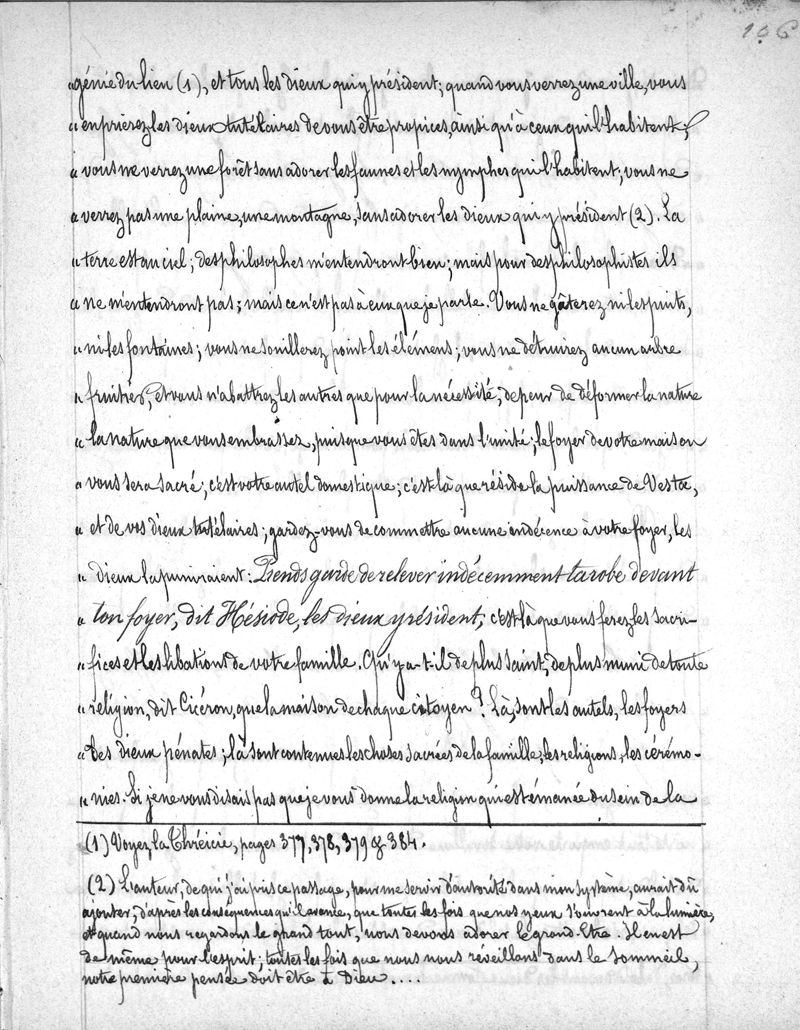 106
« génie du lieu (1), et tous les dieux qui y président; quand vous verrez une ville, vous
« en prierez les dieux tutélaires de vous être propices, ainsi qu'à ceux qui l'habitent;
« vous ne verrez une forêt sans adorer les faunes et les nymphes qui l'habitent; vous ne
« verrez pas une plaine, une montagne, sans adorer les dieux qui y président (2). La
« terre est au ciel; des philosophes m'entendront bien; mais pour des philosophistes ils
« ne m'entendront pas; mais ce n'est pas à eux que je parle. Vous ne gâterez ni les puits,
« ni les fontaines; vous ne souillerez point les élémens; vous ne détruirez aucun arbre
« fruitier, et vous n'abattrez les autres que pour la nécessité, de peur de déformer la nature
« la nature que vous embrassez, puisque vous êtes dans l'unité; le foyer de votre maison
« vous sera sacré; c'est votre autel domestique; c'est là que réside la puissance de Vesta,
« et de vos dieux tutélaires; gardez-vous de commettre aucune indécence à votre foyer, les
« dieux la puniraient: Prends garde de relever indécemment ta robe devant
« ton foyer, dit Hésiode, les dieux y résident; c'est là que vous ferez les sacri-
« fices et les libations de votre famille. Qu'y a-t-il de plus saint, de plus muni de toute
« religion, dit Cicéron, que la maison de chaque citoyen? Là, sont les autels, les foyers
« des dieux pénates; là sont contenues les choses sacrées de la famille, les religions, les cérémo-
« nies. Si je ne vous disais pas que je vous donne la religion qui est émanée du sein de la
(1) Voyez la Thréicie, pages 377, 378, 379 & 384.
(2) L'auteur, de qui j'ai pris ce passage, pour me servir d'autorité dans mon système, aurait dû
ajouter, d'après les conséquences qu'il avance, que toutes les fois que nos yeux s'ouvrent à la lumière,
et quand nous regardons le grand tout, nous devons adorer le grand-Être. Il en est
de même pour l'esprit; toutes les fois que nous nous réveillons dans le sommeil,
notre première pensée doit être à Dieu....